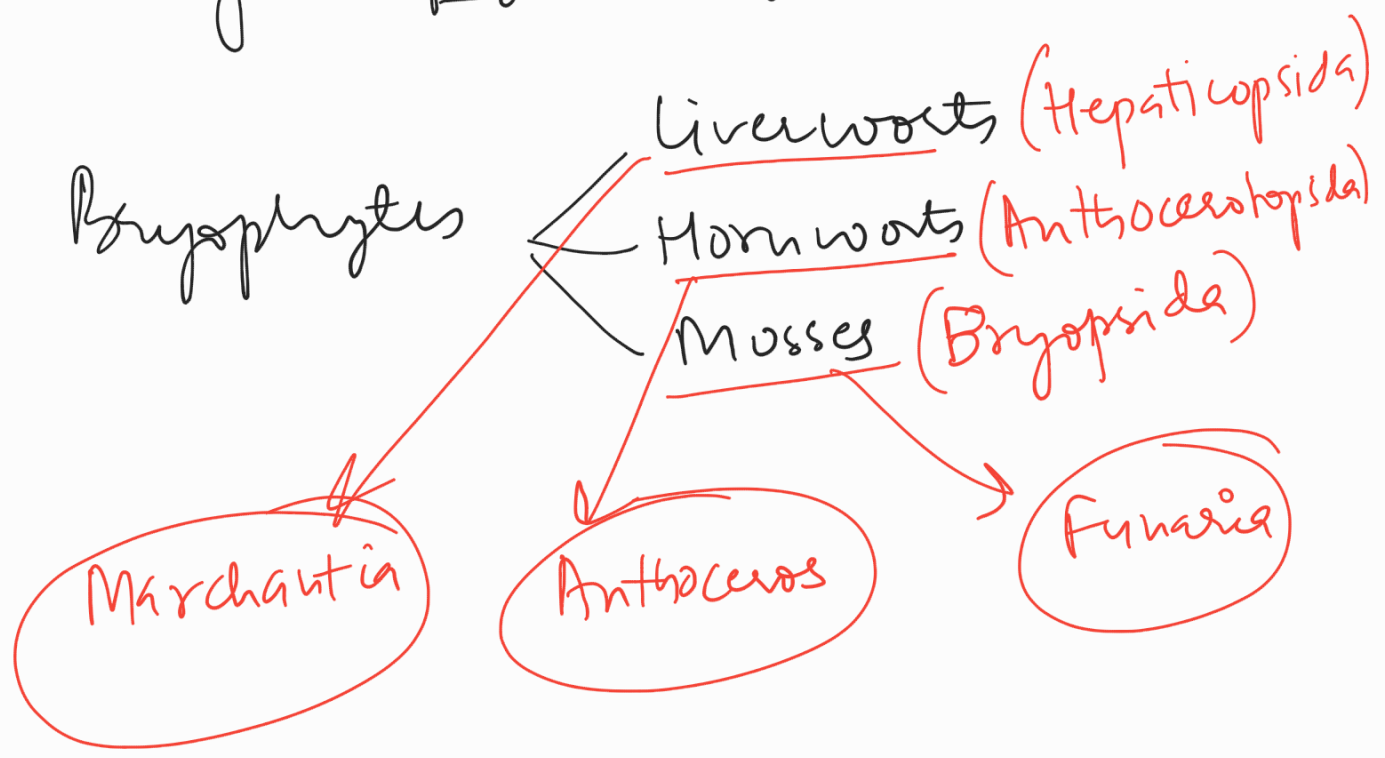 Liverworts (Hepaticopsida)
Bryophytes
Hornworts (Anthocerotopsida)
Mosses (Bryopsida)
Marchantia Anthoceros Funaria